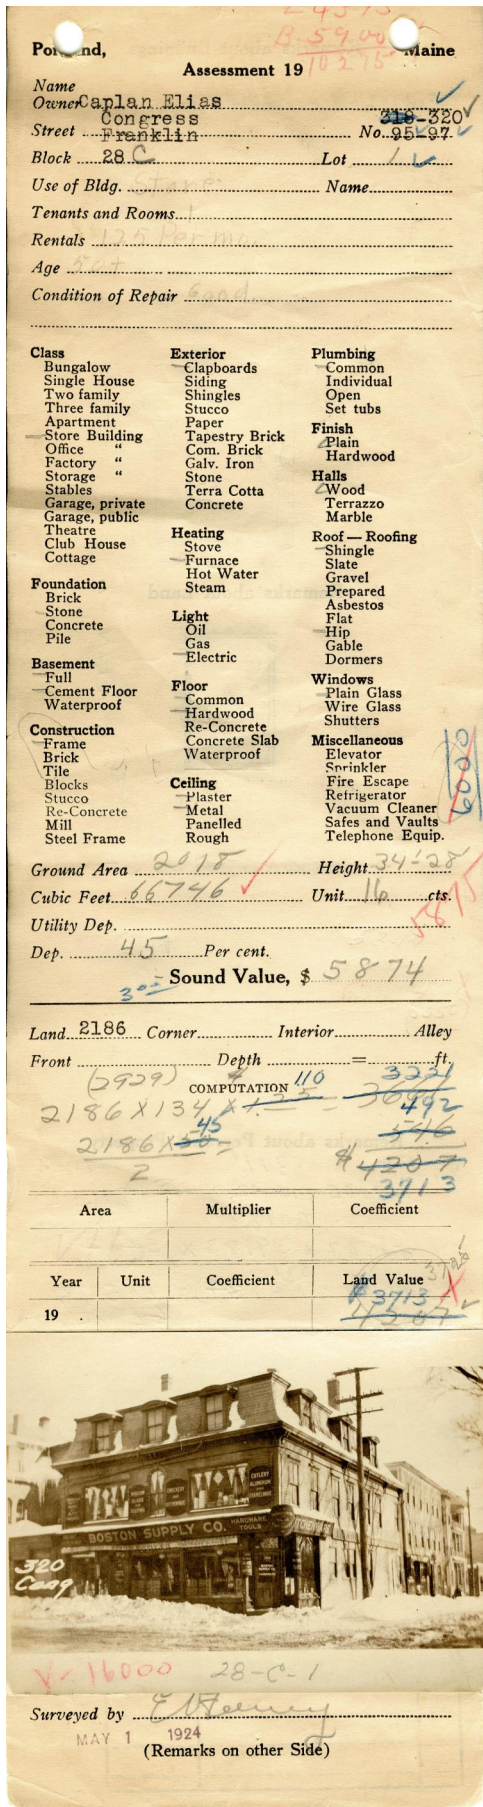 L 4375
B 5900
10275
Portland, Maine
Assessment 19
Name
Owner Caplan Elias
Congress 318-320
Street Franklin No. 95-97
Block 28 C Lot 1
Use of Bldg. Store Name
Tenants and Rooms 1
Rentals 125 Per mo.
Age 50+
Condition of Repair Good
Class
Bungalow
Single House
Two family
Three family
Apartment
Store Building
Office "
Factory "
Storage "
Stables
Garage, private
Garage, public
Theatre
Club House
Cottage
Foundation
Brick
Stone
Concrete
Pile
Basement
Full
Cement Floor
Waterproof
Construction
Frame
Brick
Tile
Blocks
Stucco
Re-Concrete
Mill
Steel Frame
Exterior
Clapboards
Siding
Shingles
Stucco
Paper
Tapestry Brick
Com. Brick
Galv. Iron
Stone
Terra Cotta
Concrete
Heating
Stove
Furnace
Hot Water
Steam
Light
Oil
Gas
Electric
Floor
Common
Hardwood
Re-Concrete
Concrete Slab
Waterproof
Ceiling
Plaster
Metal
Panelled
Rough
Plumbing
Common
Individual
Open
Set tubs
Finish
Plain
Hardwood
Halls
Wood
Terrazzo
Marble
Roof — Roofing
Shingle
Slate
Gravel
Prepared
Asbestos
Flat
Hip
Gable
Dormers
Windows
Plain Glass
Wire Glass
Shutters
Miscellaneous
Elevator
Sprinkler
Fire Escape
Refrigerator
Vacuum Cleaner
Safes and Vaults
Telephone Equip.
6000
Ground Area 2018 Height 34-28
Cubic Feet 66746 Unit 16 cts.
5875
Utility Dep.
Dep. 45 Per cent.
Sound Value, $ 5874
Land 2186 Corner Interior Alley
Front Depth = ft.
(2929) 3221
COMPUTATION 110
2186 X 134 X 125 =
492
45
2186 X 50 = 546
2 $ 4207
3713
Area Multiplier Coefficient
Year Unit Coefficient Land Value
3725
$ 3713
19 4207
BOSTON SUPPLY CO. HARDWARE TOOLS
CUTLERY
ALUMINUM
320
Cong
V-16000 28-C-1
Surveyed by
MAY 1 1924
(Remarks on other Side)